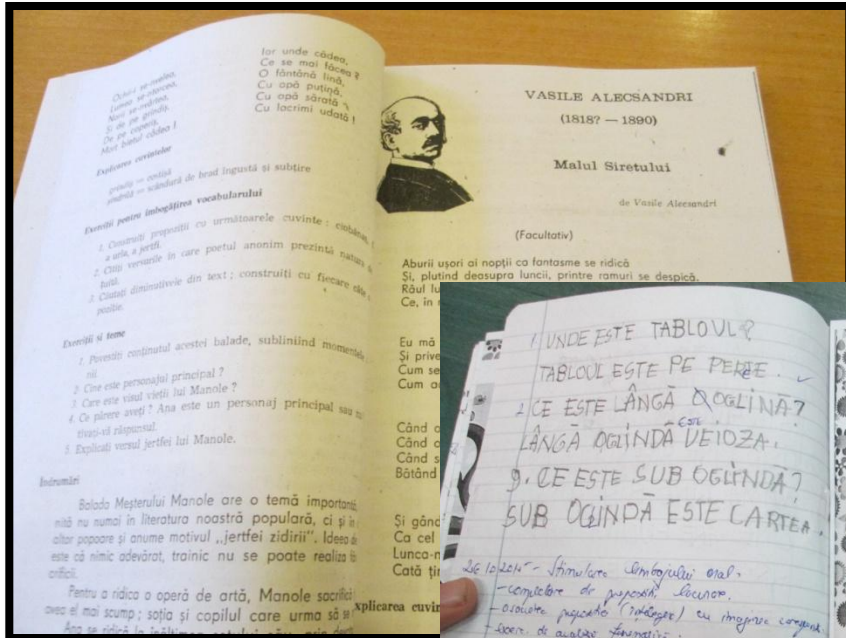 Ochii-i se-nvelea,
Lumea se-ntorcea,
Norii se-nvârtea,
Și de pe grindiș,
De pe coperiș,
Mort bietul cădea !
Iar unde cădea,
Ce se mai făcea ?
O fântână lină,
Cu apă puțină,
Cu apă sărată
Cu lacrimi udată !
Explicarea cuvintelor
grindiș —
șindrilă — scândură de brad îngustă și subțire
Exerciții pentru îmbogățirea vocabularului
1. Construiți propoziții cu următoarele cuvinte : ciobănaș,
a urla, a jertfi.
2. Citiți versurile în care poetul anonim prezintă natura
tuită.
3. Căutați diminutivele din text ; construiți cu fiecare câte
poziție.
Exerciții și teme
1. Povestiți conținutul acestei balade, subliniind momentele
nii.
2. Cine este personajul principal ?
3. Care este visul vieții lui Manole ?
4. Ce părere aveți ? Ana este un personaj principal sau
tivați-vă răspunsul.
5. Explicați versul jertfei lui Manole.
Îndrumări
Balada Meșterului Manole are o temă importantă,
nită nu numai în literatura noastră populară, ci și în
altor popoare și anume motivul „jertfei zidirii". Ideea
este că nimic adevărat, trainic nu se poate realiza
crificii.
Pentru a ridica o operă de artă, Manole sacrifică
avea el mai scump ; soția și copilul care urma să se
Ana se ridică la înălțimea soțului său, prin
VASILE ALECSANDRI
(1818? — 1890)
Malul Siretului
de Vasile Alecsandri
(Facultativ)
Aburii ușori ai nopții ca fantasme se ridică
Și, plutind deasupra luncii, printre ramuri se despică.
Râul
Ce, în
Eu mă
Și prive
Cum se
Cum
Când
Când
Când s
Bătând
Și gând
Ca cel
Lunca-n
Cată
xplicarea cuvin
1. UNDE ESTE TABLOUL?
TABLOUL ESTE PE PERETE.
2. CE ESTE LÂNGĂ OGLINĂ?
LÂNGĂ OGLINDĂ ESTE VEIOZA.
9. CE ESTE SUB OGLINDĂ?
SUB OGINDĂ ESTE CARTEA.
- Stimularea limbajului oral:
- completare de propoziții lacunare.
- asocierea propoziției cu imaginea